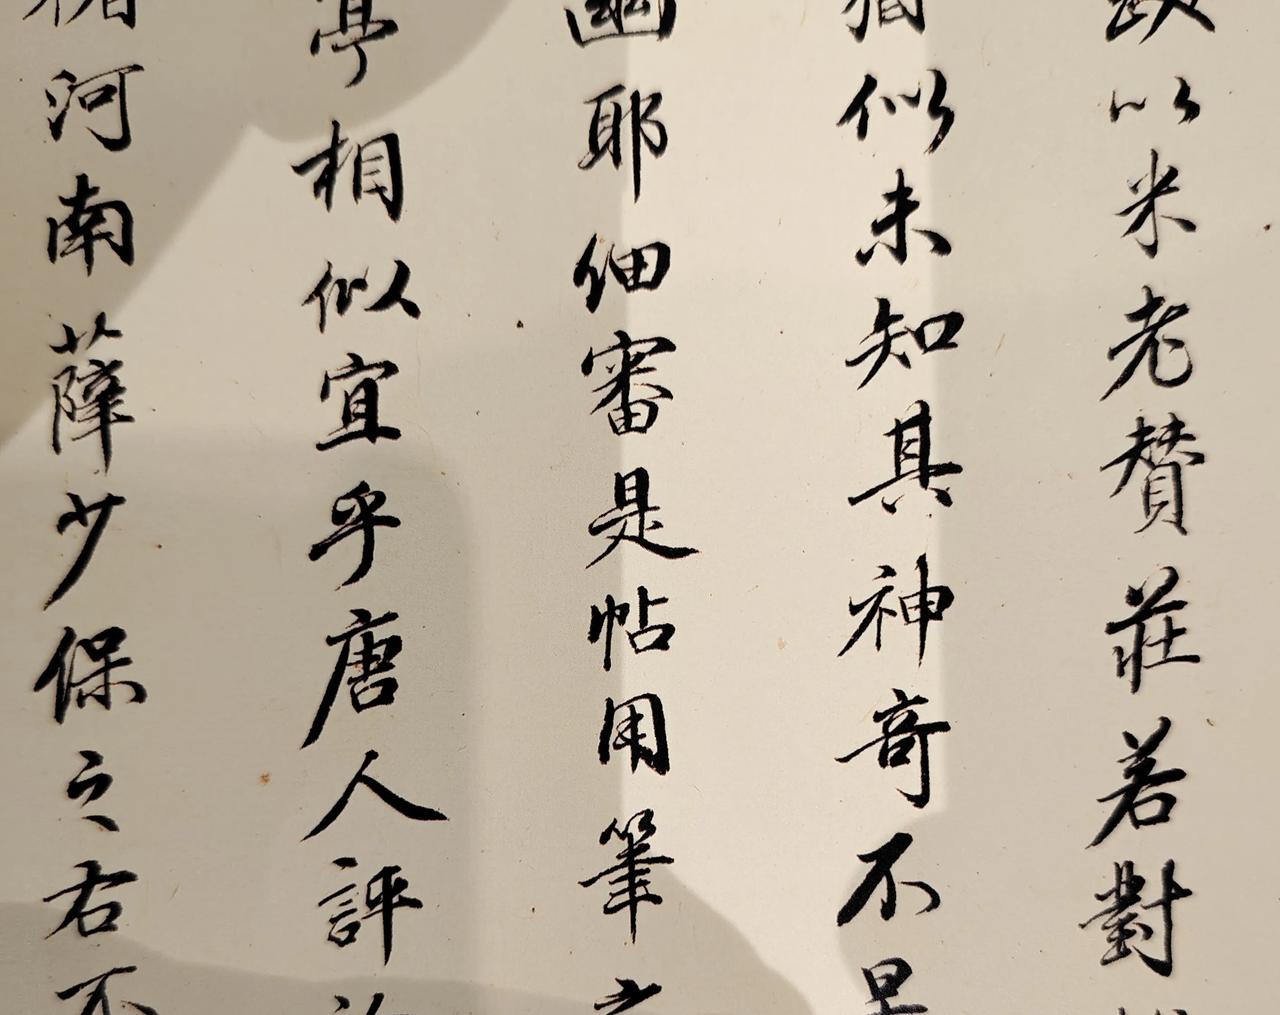 以米老賛莊若對
似未知具神奇不是
耶細審是帖用筆
亭相似宜乎唐人評
河南薛少保之右不